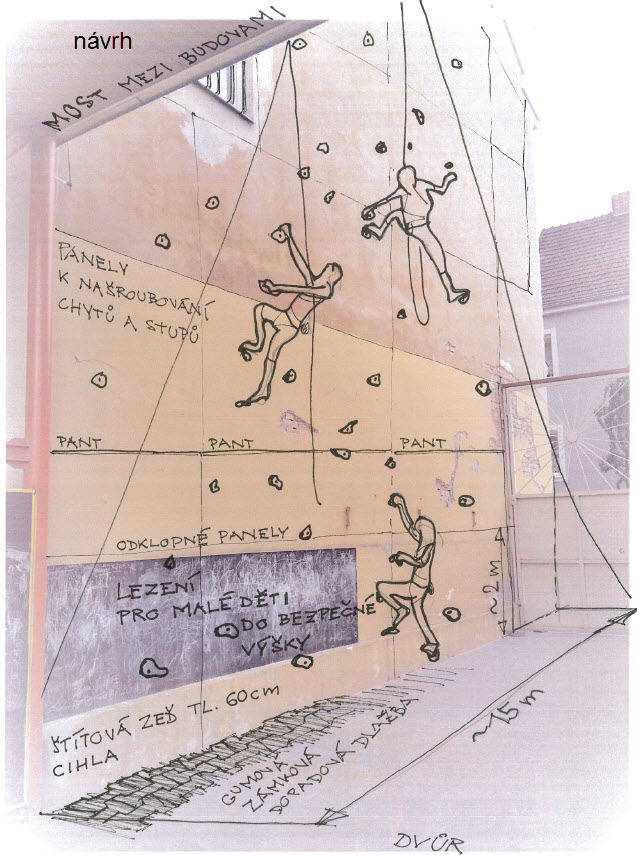 návrh
MOST MEZI BUDOVAMI
PANELY
K NAŠROUBOVÁNÍ
CHYTŮ A STUPŮ
PANT
PANT
PANT
ODKLOPNÉ PANELY
LEZENÍ
PRO MALÉ DĚTI
DO BEZPEČNÉ
VÝŠKY
~2 m
ŠTÍTOVÁ ZEĎ TL. 60cm
CIHLA
GUMOVÁ
ZÁMKOVÁ
DOPADOVÁ DLAŽBA
~15 m
DVŮR